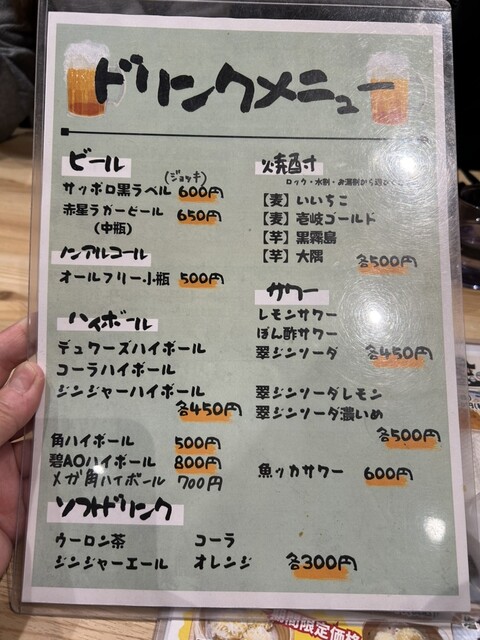 ドリンクメニュー
ビール
(ジョッキ)
サッポロ黒ラベル 600円
赤星ラガービール 650円
(中瓶)
ノンアルコール
オールフリー小瓶 500円
ハイボール
デュワーズハイボール
コーラハイボール
ジンジャーハイボール
各450円
角ハイボール 500円
碧AOハイボール 800円
メガ角ハイボール 700円
ソフトドリンク
ウーロン茶 コーラ
ジンジャーエール オレンジ 各300円
焼酎
ロック・水割・お湯割から
【麦】いいちこ
【麦】壱岐ゴールド
【芋】黒霧島
【芋】大隅
各500円
サワー
レモンサワー
ぽん酢サワー
翠ジンソーダ 各450円
翠ジンソーダレモン
翠ジンソーダ濃いめ
各500円
魚ッカサワー 600円
期間限定価格